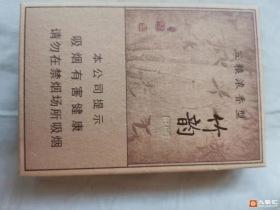 五粮浓香型
竹韵
本公司提示
吸烟有害健康
请勿在禁烟场所吸烟